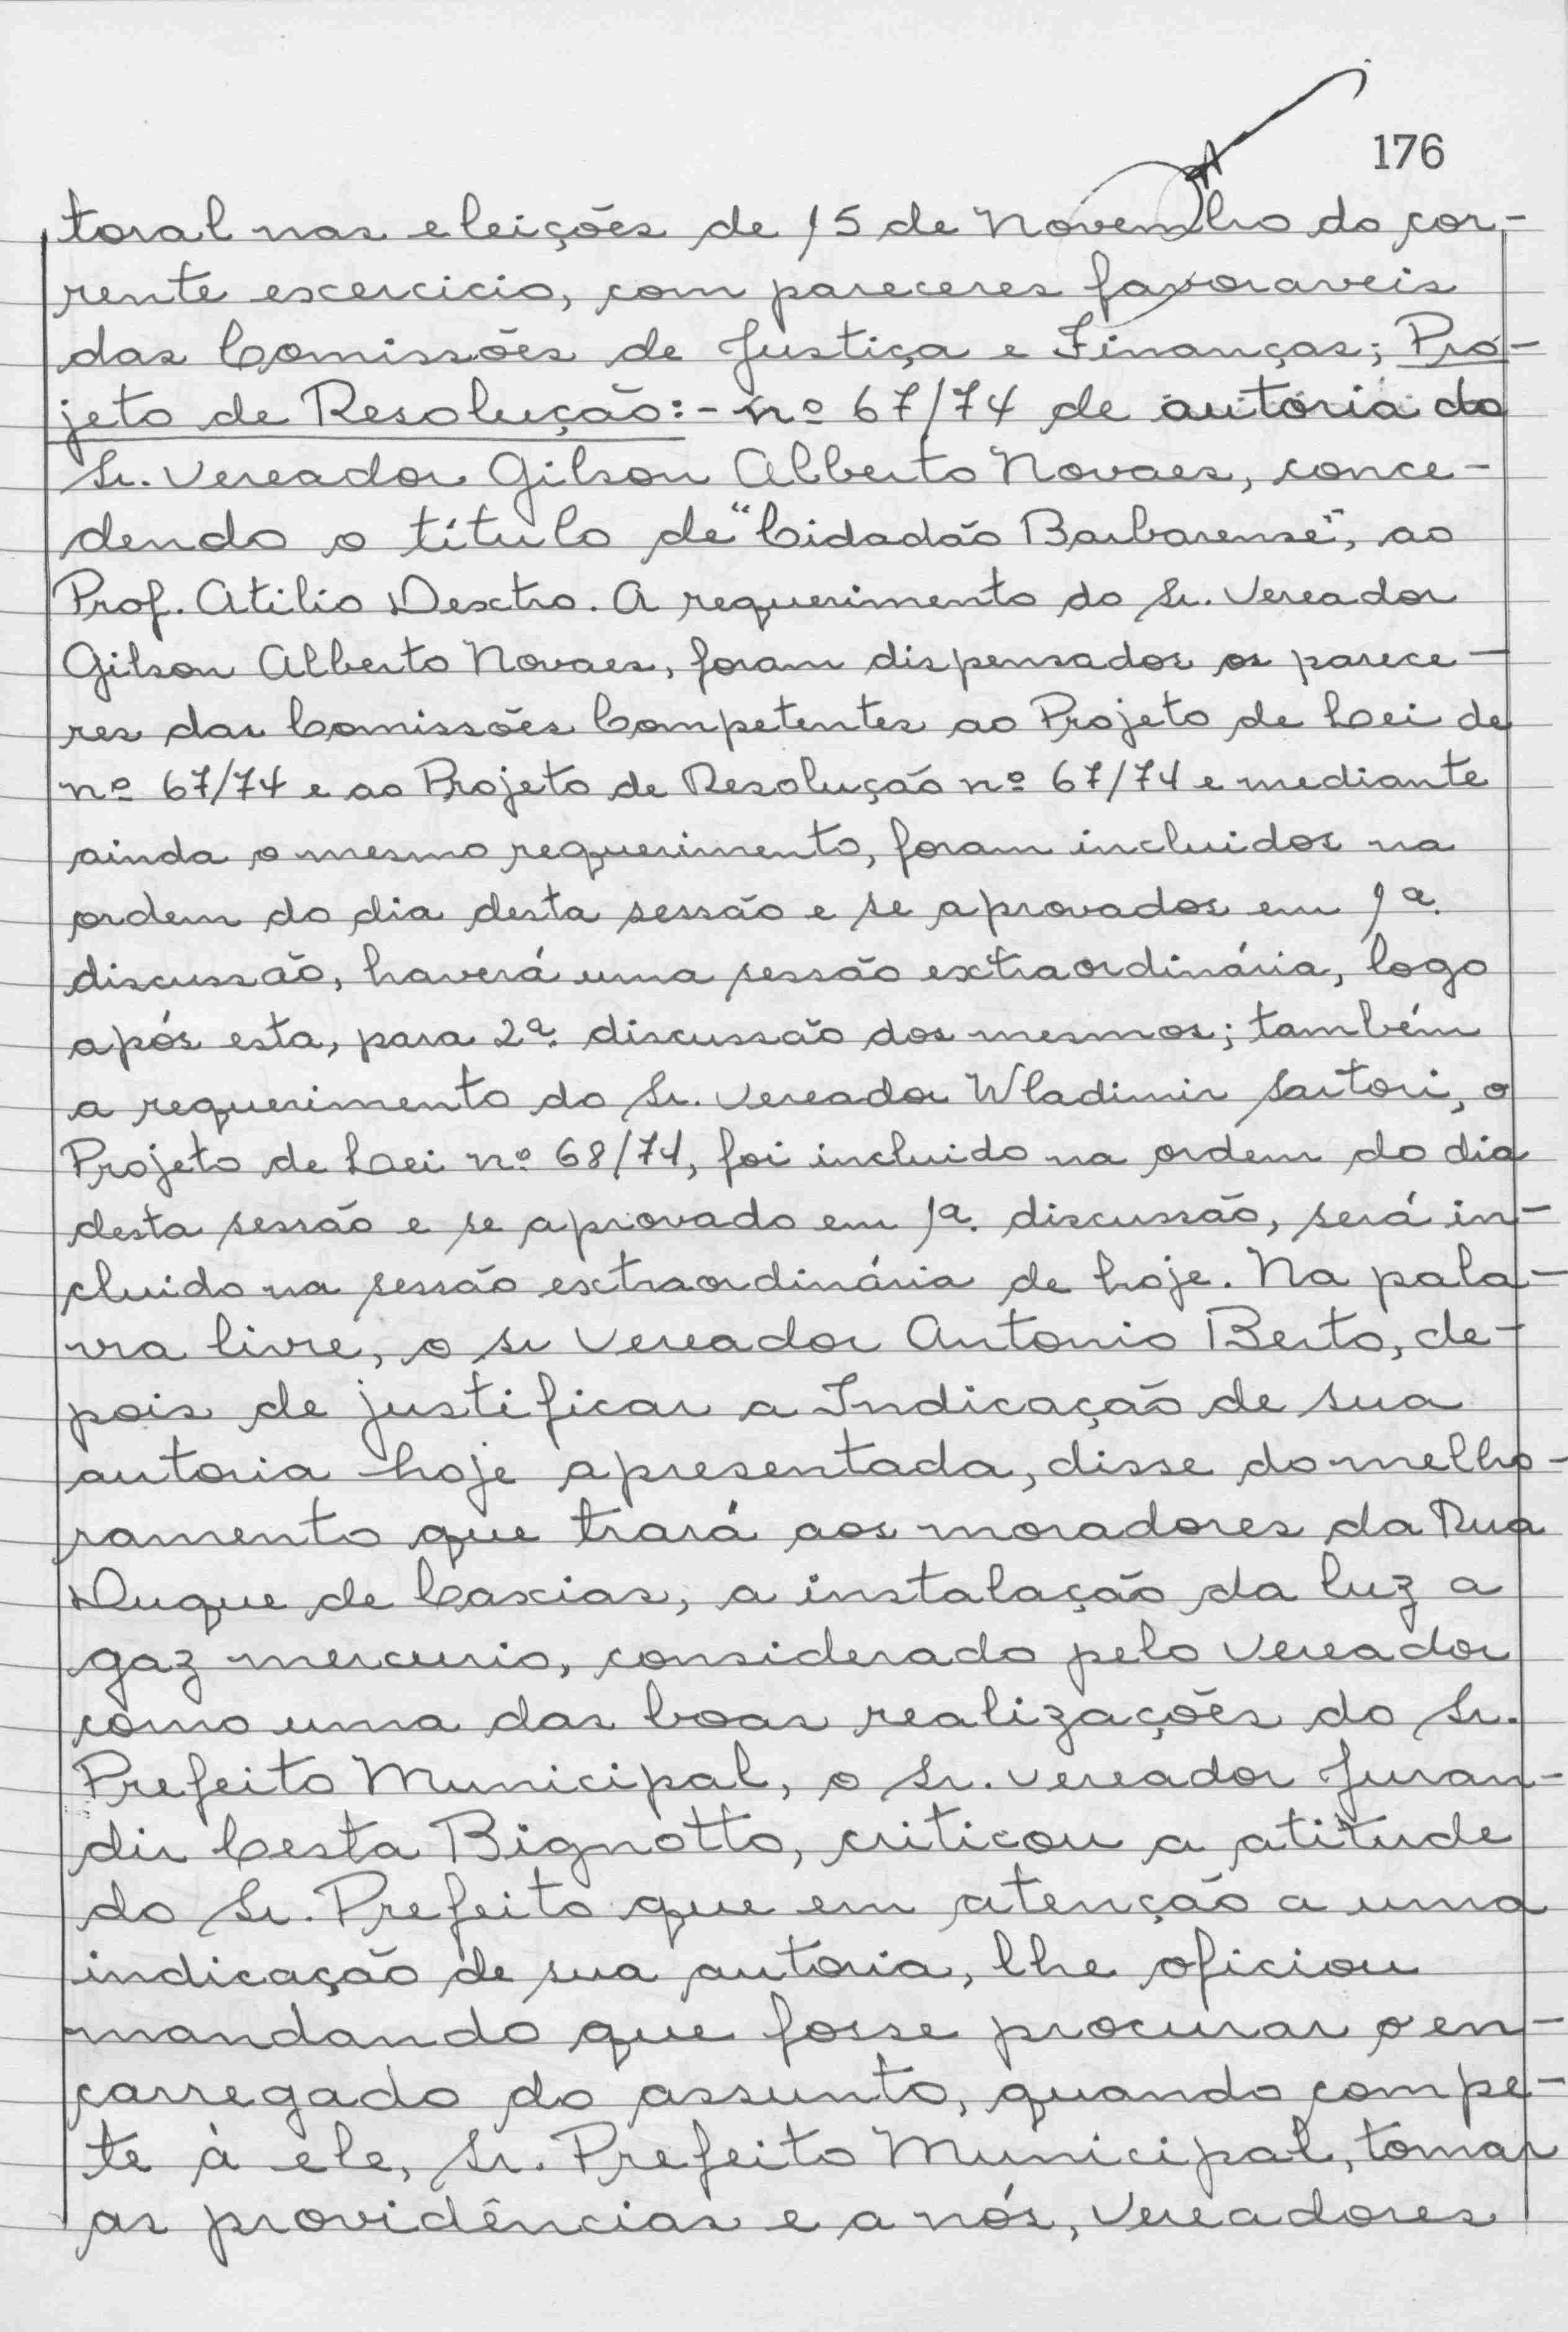 176
toral nas eleições de 15 de Novembro do cor-
rente excercicio, com pareceres favoraveis
das Comissões de Justiça e Finanças; Pro-
jeto de Resolução:- nº 67/74 de autoria do
Sr. Vereador Gilson Alberto Novaes, conce-
dendo o título de "Cidadão Barbarense", ao
Prof. Atilio Dextro. A requerimento do Sr. Vereador
Gilson Alberto Novaes, foram dispensados os parece-
res das Comissões Competentes ao Projeto de Lei de
nº 67/74 e ao Projeto de Resolução nº 67/74 e mediante
ainda o mesmo requerimento, foram incluidos na
ordem do dia desta sessão e se aprovados em 1ª.
discussão, haverá uma sessão extraordinária, logo
após esta, para 2ª. discussão dos mesmos; também
a requerimento do Sr. Vereador Wladimir Sartori, o
Projeto de Lei nº 68/74, foi incluido na ordem do dia
desta sessão e se aprovado em 1ª. discussão, será in-
cluido na sessão extraordinária de hoje. Na pala-
vra livre, o sr Vereador Antonio Berto, de-
pois de justificar a Indicação de sua
autoria hoje apresentada, disse do melho-
ramento que trará aos moradores da Rua
Duque de Caxias, a instalação da luz a
gaz mercurio, considerado pelo Vereador
como uma das boas realizações do Sr.
Prefeito Municipal, o Sr. Vereador Juran-
dir Cesta Bignotto, criticou a atitude
do Sr. Prefeito que em atenção a uma
indicação de sua autoria, lhe oficiou
mandando que fosse procurar o en-
carregado do assunto, quando compe-
te à ele, Sr. Prefeito Municipal, tomar
as providências e a nós, Vereadores